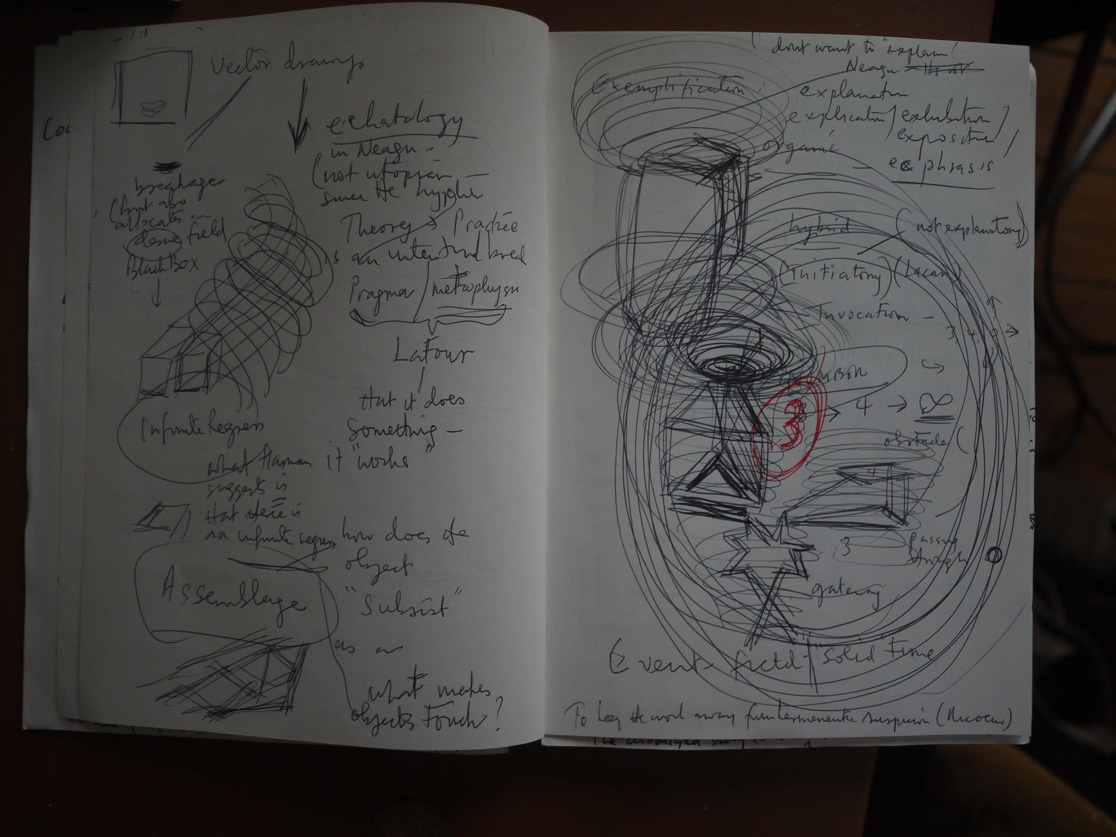 Vector drawings
Co
eschatology
in Neagu -
(not utopian
since the hyphen
breakage
(but also
allocates
desire field
Black Box
Theory → Practice
is an intertwined breed
Pragma / metaphysn
Latour
that it does
something -
it "works"
Infinite Regress
what Harman
suggests is
that there is
no infinite regress
how does the
object
"subsist"
Assemblage
as an
what makes
objects Touch?
I dont want to 'explain'
Neagu
Exemplification
explanation
explication / exhibition /
exposition /
ecphrasis
organic
hybrid
(not explanatory)
(initiatory) (Lacan)
Invocation -
3 4
3 → 4 → ∞
obstacle (
4
3
passing
through
gateway
Event-field - "solid time
To keep the work away from hermeneutic suspicion (Ricoeur)